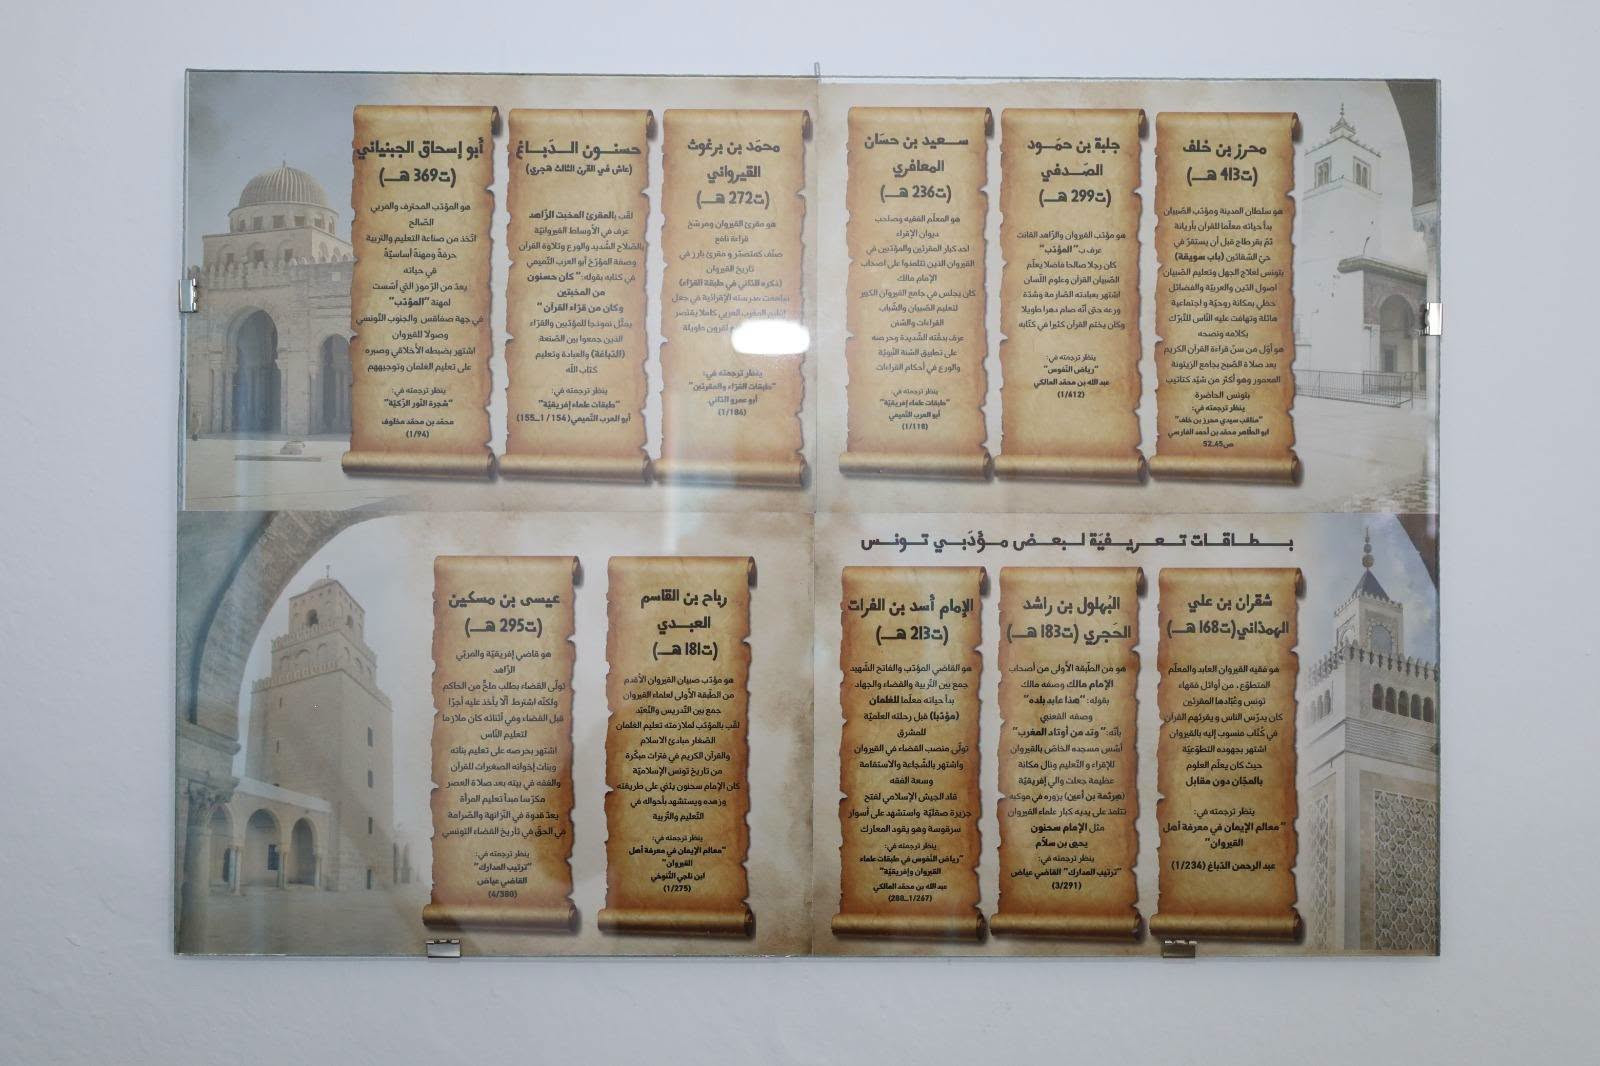 محرز بن خلف
(ت413 هـ)
هو سلطان المدينة ومؤدّب الصّبيان
بدأ حياته معلّما للقرآن بأريانة
ثمّ بقرطاج قبل أن يستقرّ في
حيّ السّقائين (باب سويقة)
بتونس لعلاج الجهل وتعليم الصّبيان
أصول الدّين والعربيّة والفضائل
حظي بمكانة روحيّة و اجتماعية
هائلة وتهافت عليه النّاس للتّبرّك
بكلامه ونصحه
هو أوّل من سنّ قراءة القرآن الكريم
بعد صلاة الصّبح بجامع الزيتونة
المعمور وهو أكثر من شيّد كتاتيب
بتونس الحاضرة
ينظر ترجمته في:
"مناقب سيدي محرز بن خلف"
ابو الطّاهر محمّد بن أحمد الفارسي
ص45ـ52
جبلة بن حمّـود
الصّـدفي
(ت299 هـ)
هو مؤدّب القيروان والزّاهد القانت
عرف بـ"المؤدّب"
كان رجلا صالحا فاضلا يعلّم
الصّبيان القرآن وعلوم اللّسان
اشتهر بعبادته الصّارمة وشدّة
ورعه حتى أنّه صام دهرا طويلا
وكان يختم القرآن كثيرا في كتّابه
ينظر ترجمته في:
"رياض النّفوس"
عبد الله بن محمّد المالكي
(1/412)
سـعيد بن حسّان
المعافري
(ت236 هـ)
هو المعلّم الفقيه وصاحب
ديوان الإقراء
أحد كبار المقرئين والمؤدّبين في
القيروان الذين تتلمذوا على أصحاب
الإمام مالك
كان يجلس في جامع القيروان الكبير
لتعليم الصّبيان والشّباب
القراءات والسّنن
عرف بدقّته الشّديدة وحرصه
على تطبيق السّنة النّبويّة
والورع في أحكام القراءات
ينظر ترجمته في:
"طبقات علماء إفريقيّة"
أبو العرب التّميمي
(1/118)
محمّد بن برغوث
القيرواني
(ت272 هـ)
هو مقرئ القيروان ومرسّخ
قراءة نافع
صنّف كمتصدّر و مقرئ بارز في
تاريخ القيروان
(ذكره الدّاني في طبقة القرّاء)
ساهمت مدرسته الإقرائية في جعل
لقرون طويلة
ينظر ترجمته في:
"طبقات القرّاء والمقرئين"
أبو عمرو الدّاني
(1/186)
حسنـون الـدّبـاغ
(عاش في القرن الثالث هجري)
لقّب بالمقرئ المخبت الزّاهد
عرف في الأوساط القيروانيّة
بالصّلاح الشّديد والورع وتلاوة القرآن
وصفه المؤرّخ أبو العرب التّميمي
في كتابه بقوله:"كان حسنون
من المخبتين
وكان من قرّاء القرآن"
يمثّل نموذجا للمؤدّبين والقرّاء
الذين جمعوا بين الصّنعة
(الدّباغة) والعبادة وتعليم
كتاب اللّه
ينظر ترجمته في:
"طبقات علماء إفريقيّة"
أبو العرب التّميمي(154 / 1_155)
أبو إسحاق الجبنياني
(ت369 هـ)
هو المؤدّب المحترف والمربي
الصّالح
اتّخذ من صناعة التعليم والتربية
حرفةً ومهنةً أساسيّةً
في حياته
يعدّ من الرّموز التي أسّست
لمهنة "المؤدّب"
في جهة صفاقس والجنوب التّونسي
وصولا للقيروان
اشتهر بضبطه الأخلاقي وصبره
على تعليم الغلمان وتوجيههم
ينظر ترجمته في:
"شجرة النّور الزّكيّة"
محمّد بن محمّد مخلوف
(1/94)
بـطـاقـات تـعـريـفـيّة لـبـعـض مـؤدّبـي تـونـس
شقران بن علي
الهمدّاني(ت168 هـ)
هو فقيه القيروان العابد والمعلّم
المتطوّع، من أوائل فقهاء
تونس وعُبّادها المقرئين
كان يدرّس الناس و يقرئهم القرآن
في كُتّاب منسوب إليه بالقيروان
اشتهر بجهوده التطوّعيّة
حيث كان يعلّم العلوم
بالمجّان دون مقابل
ينظر ترجمته في:
"معالم الإيمان في معرفة أهل
القيروان"
عبد الرحمن الدّباغ (1/234)
البُهلول بن راشد
الحَجري (ت183 هـ)
هو من الطّبقة الأولى من أصحاب
الإمام مالك وصفه مالك
بقوله: "هذا عابد بلده"
وصفه القعنبي
بأنّه:"وتد من أوتاد المغرب"
أسّس مسجده الخاصّ بالقيروان
للإقراء و التّعليم ونال مكانة
عظيمة جعلت والي إفريقيّة
(هرثمة بن أعين) يزوره في موكبه
تتلمذ على يديه كبار علماء القيروان
مثل الإمام سحنون
يحيى بن سلاّم
ينظر ترجمته في:
"ترتيب المدارك" القاضي عياض
(3/291)
الإمام أسد بن الفرات
(ت213 هـ)
هو القاضي المؤدّب والفاتح الشّهيد
جمع بين التّربية والقضاء والجهاد
بدأ حياته معلّما للغلمان
(مؤدّبا) قبل رحلته العلميّة
للمشرق
تولّى منصب القضاء في القيروان
واشتهر بالشّجاعة والاستقامة
وسعة الفقه
قاد الجيش الإسلامي لفتح
جزيرة صقليّة واستشهد على أسوار
سرقوسة وهو يقود المعارك
ينظر ترجمته في:
"رياض النّفوس في طبقات علماء
القيروان وإفريقيّة"
عبد الله بن محمّد المالكي
(1/267_288)
رباح بن القاسم
العبـدي
(ت181 هـ)
هو مؤدّب صبيان القيروان الأقدم
من الطّبقة الأولى لعلماء القيروان
جمع بين التّدريس والتّعبّد
لقّب بالمؤدّب لملازمته تعليم الغلمان
الصّغار مبادئ الاسلام
والقرآن الكريم في فترات مبكّرة
من تاريخ تونس الإسلاميّة
كان الإمام سحنون يثني على طريقته
وزهده ويستشهد بأحواله في
التّعليم والتّربية
ينظر ترجمته في:
"معالم الإيمان في معرفة أهل
القيروان"
ابن ناجي التّنوخي
(1/275)
عيسى بن مسكين
(ت295 هـ)
هو قاضي إفريقيّة والمربّي
الزّاهد
تولّى القضاء بطلب ملحٍّ من الحاكم
ولكنّه اشترط ألّا يأخذ عليه أجرًا
قبل القضاء وفي أثنائه كان ملازما
لتعليم النّاس
اشتهر بحرصه على تعليم بناته
وبنات إخوانه الصغيرات للقرآن
والفقه في بيته بعد صلاة العصر
مكرّسا مبدأ تعليم المرأة
يعدّ قدوة في النّزاهة والصّرامة
في الحقّ في تاريخ القضاء التونسي
ينظر ترجمته في:
"ترتيب المدارك"
القاضي عياض
(4/380)